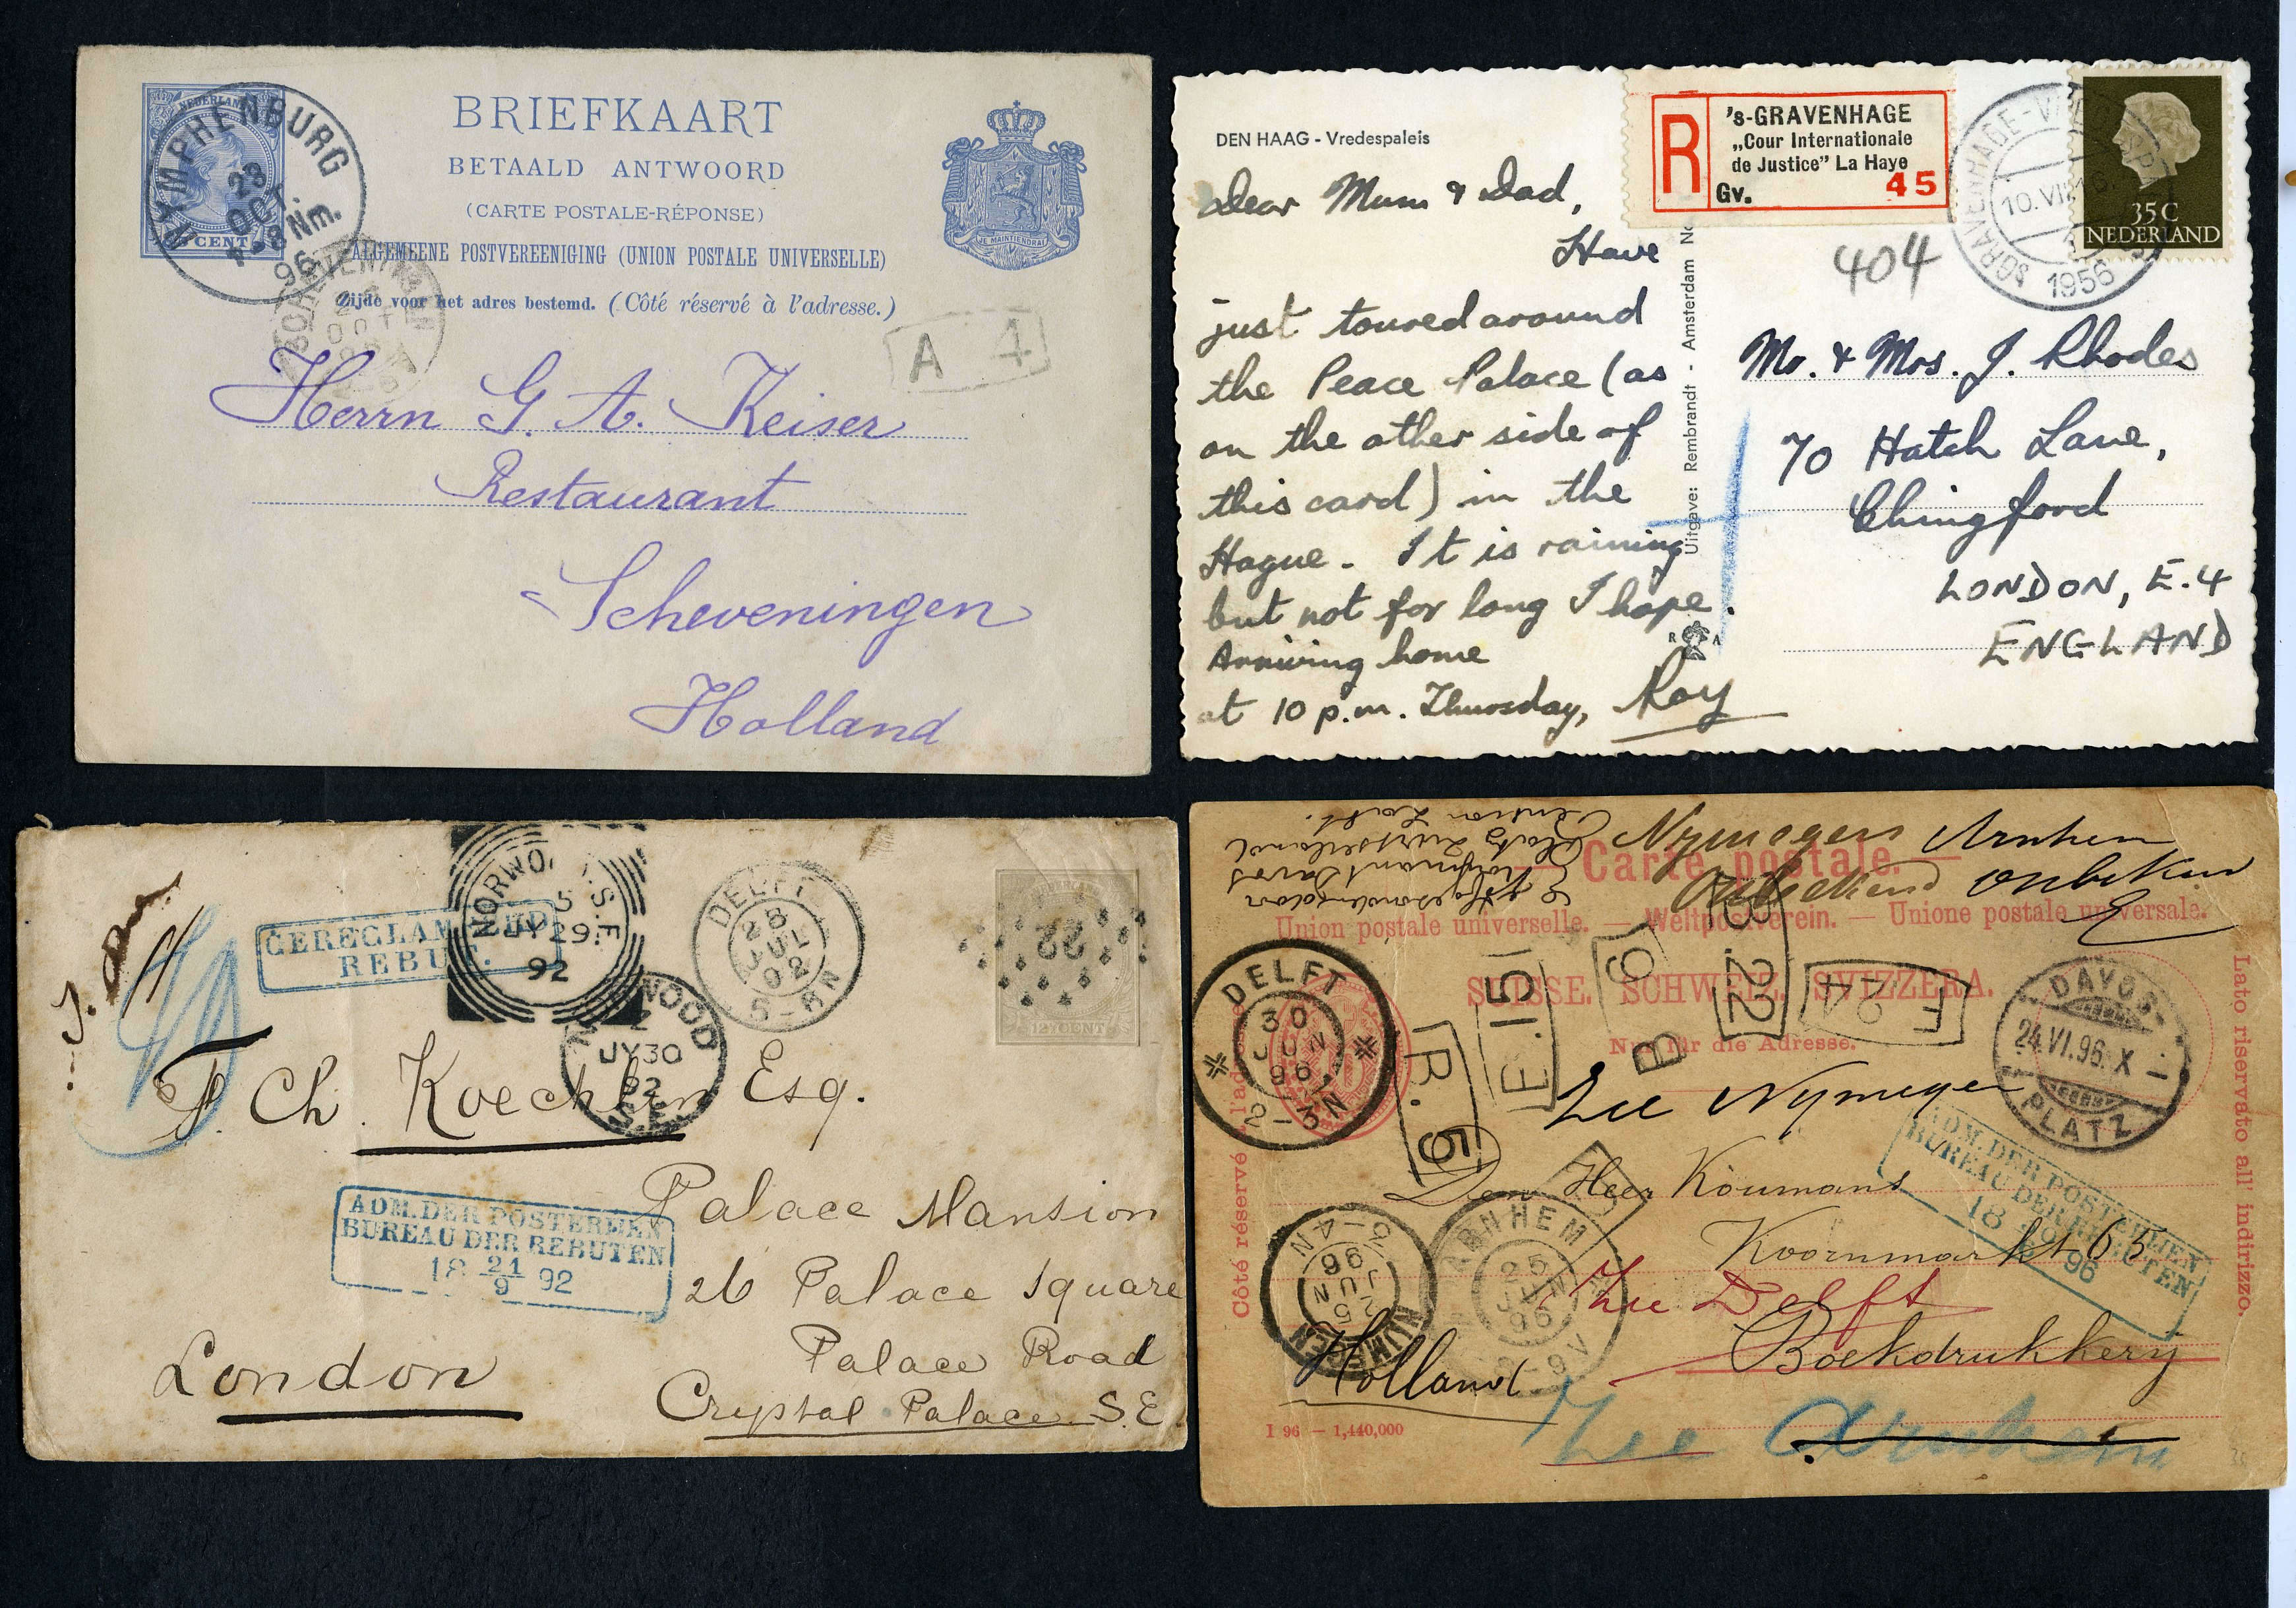 NEDERLAND
CENT
BRIEFKAART
BETAALD ANTWOORD
(CARTE POSTALE-RÉPONSE)
ALGEMEENE POSTVEREENIGING (UNION POSTALE UNIVERSELLE)
Zijde voor het adres bestemd. (Côté réservé à l'adresse.)
JE MAINTIENDRAI
NYMPHENBURG
23
OCT.
7-8 Nm.
96
OCT
A 4
Herrn G. A. Keiser
Restaurant
Scheveningen
Holland
DEN HAAG - Vredespaleis
R
's-GRAVENHAGE
„Cour Internationale
de Justice" La Haye
Gv. 45
1956
35 C
NEDERLAND
404
Dear Mum & Dad,
Have
just toured around
the Peace Palace (as
on the other side of
this card) in the
Hague. It is raining
but not for long I hope.
Arriving home
at 10 p.m. Thursday, Roy
Uitgave: Rembrandt - Amsterdam
Mr. & Mrs. J. Rhodes
70 Hatch Lane,
Chingford
LONDON, E.4
ENGLAND
GEREGLAMEERD
REBUT.
NORWOOD S.E.
5
JY 29
92
NORWOOD
JY 30
92
S.E.
DELFT
28
JUL
92
5-6N
22
12½ CENT
F. Ch. Koechlin Esq.
Palace Mansion
26 Palace Square
Palace Road
Crystal Palace S.E.
London
ADM. DER POSTERIJEN
BUREAU DER REBUTEN
18 21/9 92
Nymegen Arnhem
Onbekend Onbekend
Carte postale.
Union postale universelle. — Weltpostverein. — Unione postale universale.
SUISSE. SCHWEIZ. SVIZZERA.
Nur für die Adresse.
Côté réservé à l'adresse.
Lato riservato all' indirizzo.
DELFT
30
JUN
96
2-3N
R.5
E.15
B 9
B.22
F
DAVOS-
24.VI.96.X
PLATZ
Zie Nymegen
Den Heer Koumans
Koornmarkt 63
Zie Delft
Boekdrukkery
Holland
ADM. DER POSTERIJEN
BUREAU DER REBUTEN
18 96
NIJMEGEN
25
JUN
96
3-4N
ARNHEM
25
JUN
96
8-9V
I 96 — 1,440,000
Zie Arnhem